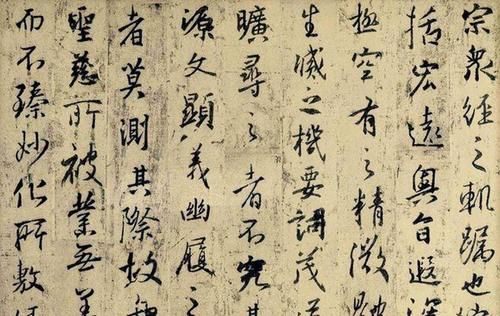 宗衆經之軌躅也
括宏遠奧旨遐深
極空有之精微
生滅之機要詞茂道
曠尋之者不究其
源文顯義幽履之
者莫測其際故
聖慈所被業無
而不臻妙化所敷